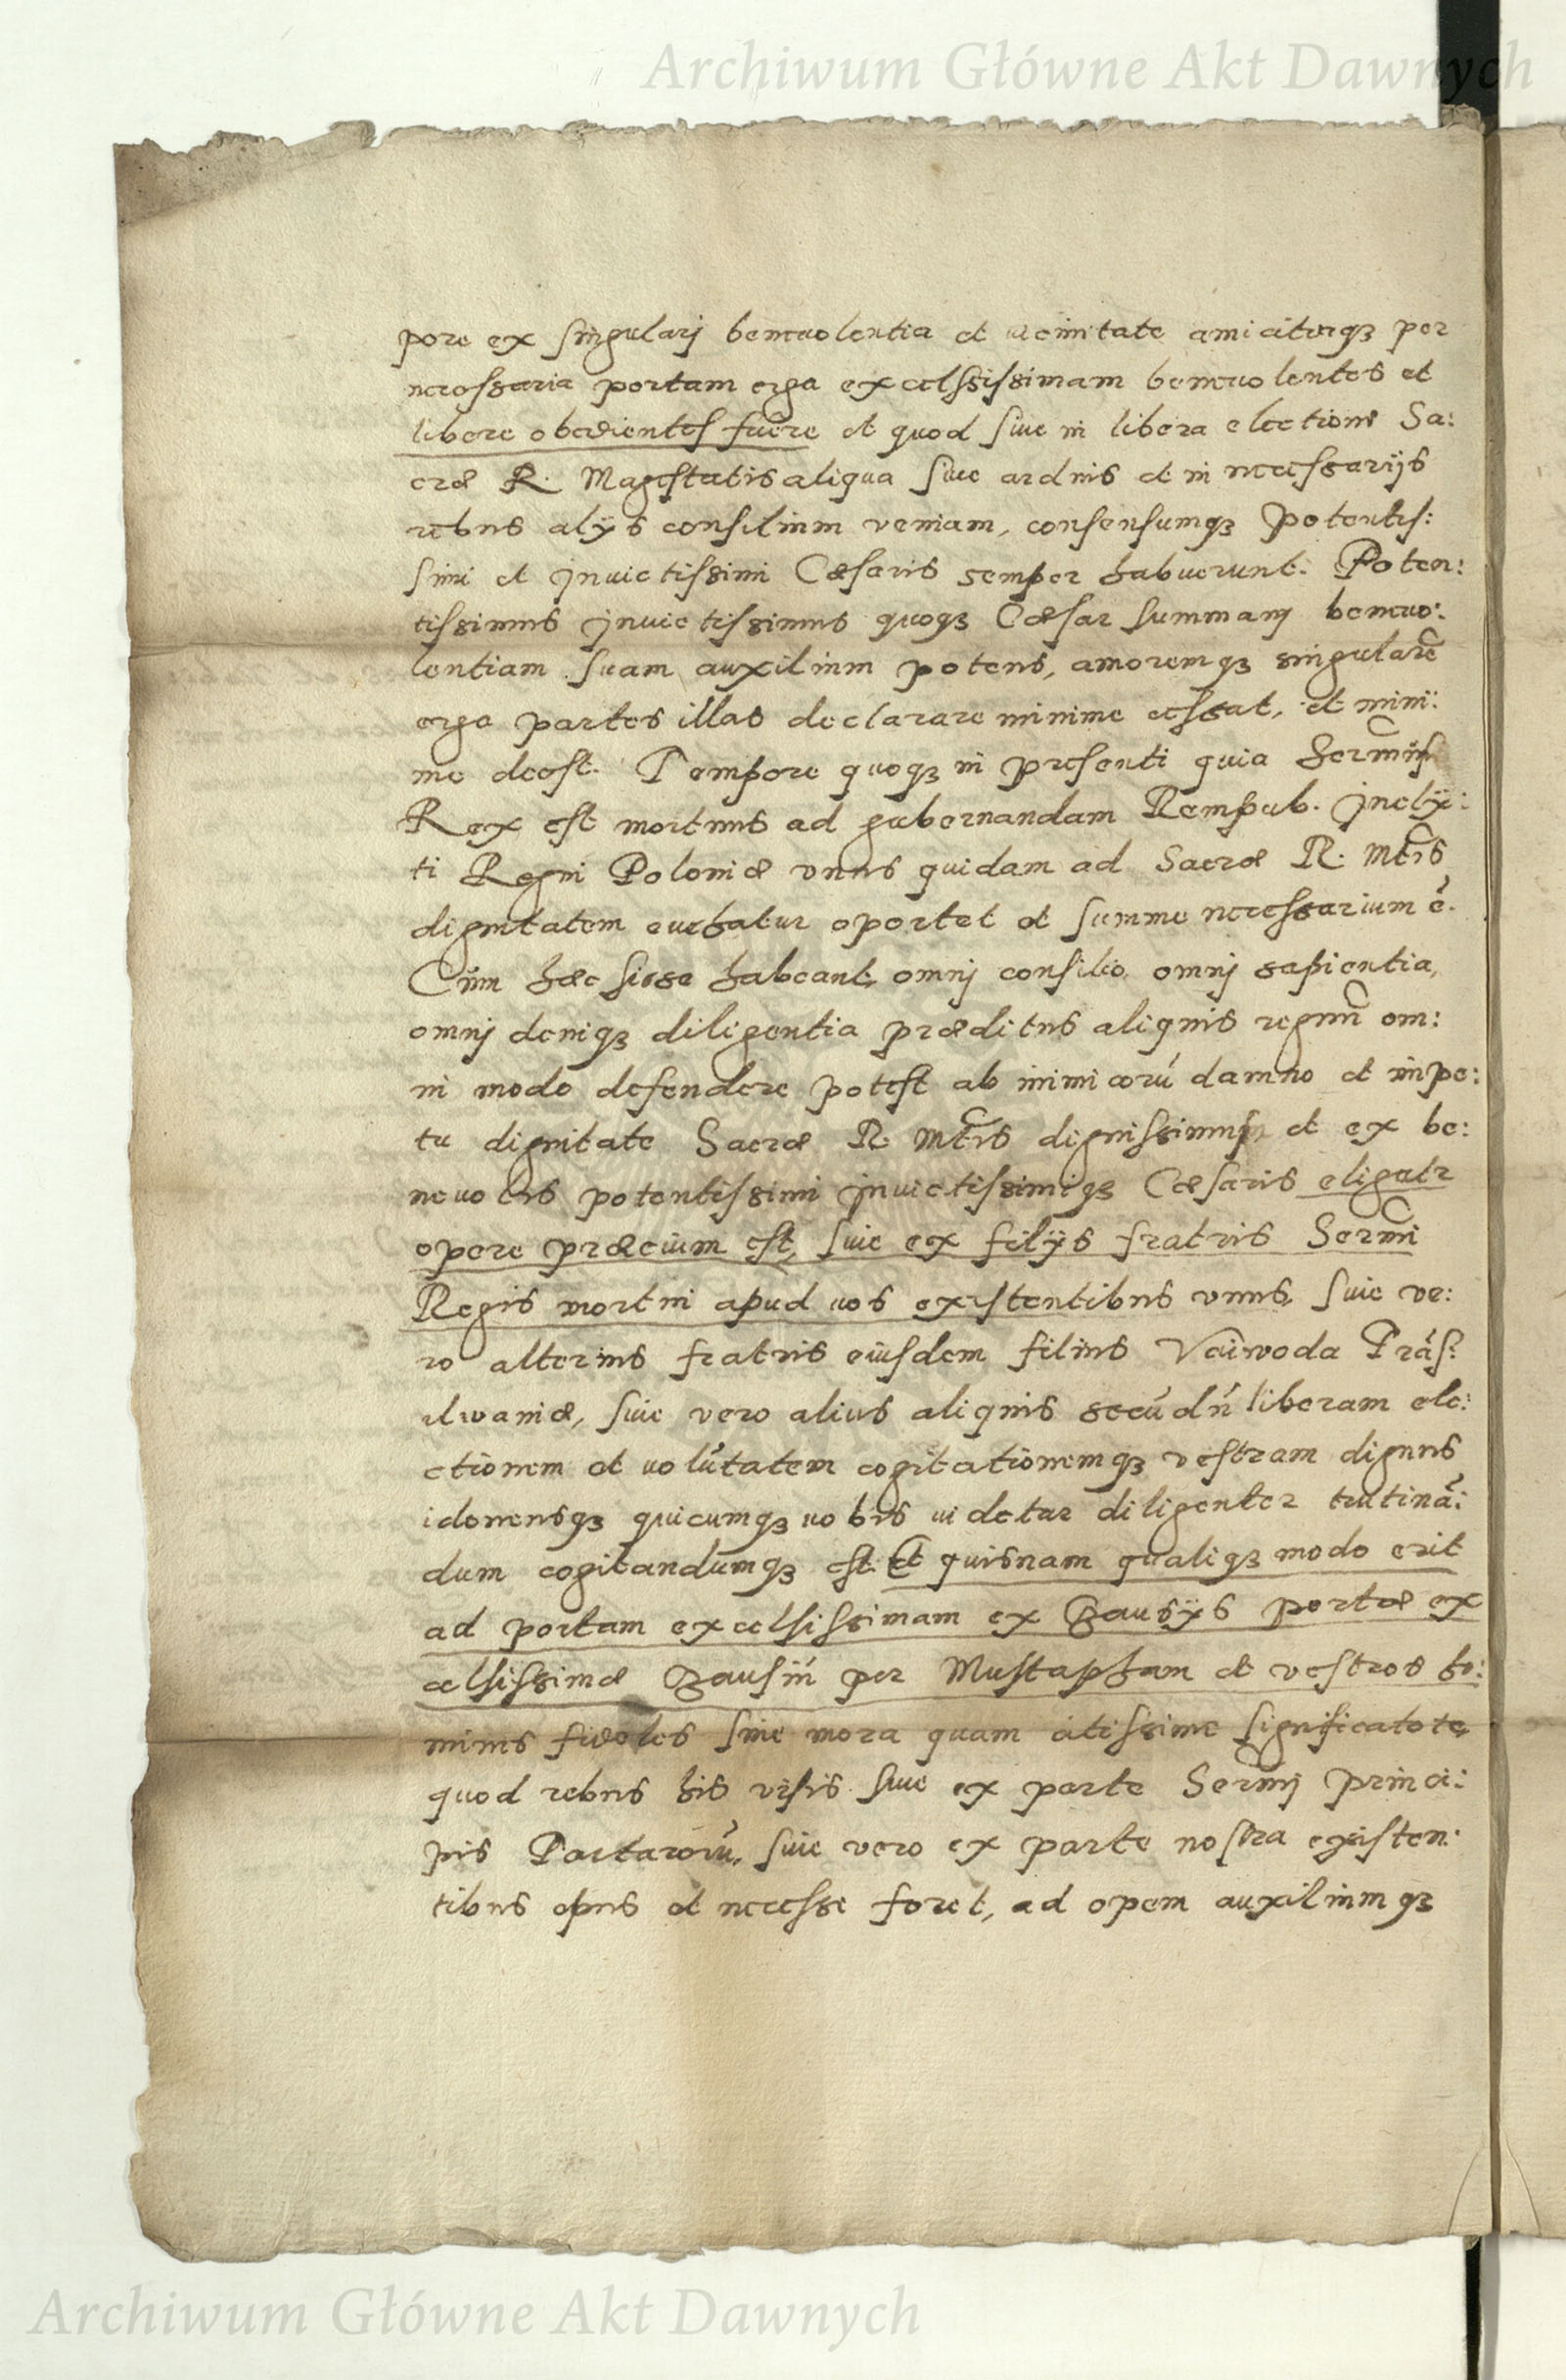 Archiwum Główne Akt Dawnych
pore ex singularj beneuolentia et uicinitate amicitiaqꝫ per
necessaria portam erga excelsissimam beneuolentes et
libere obedientes fuere et quod siue in libera electione Sa:
cræ R. Magestatis aliqua siue arduis et in necessarijs
rebus alÿs consilium veniam, consensumqꝫ Potentis:
simi et jnuictissimi Cæsaris semper habuerunt. Poten:
tissimus jnuictissimus quoqꝫ Cæsar summam beneuo:
lentiam suam auxilium potens, amoremqꝫ singularē
erga partes illas declarare minime cessat, et mini:
me deest. Tempore quoqꝫ in presenti quia Sermus
Rex est mortuus ad gubernandam Rempub. jnclÿ:
ti Regni Poloniæ vnus quidam ad Sacræ R. Mtis
dignitatem euehatur oportet et summe necessarium ē.
Cùm hæc sicse habeant, omnj consilio, omnj sapientia,
omnj deniqꝫ diligentia præditus aliquis regnū om:
ni modo defendere potest ab inimicorú damno et impe:
tu dignitate Sacræ R. Mtis dignissimus et ex be:
neuotis potentissimi jnuictissimiqꝫ Cæsaris eligatr
opere præcium est, siue ex filÿs fratris Sermi
Regis mortui apud uos existentibus vnus, siue ve:
ro alterius fratris eiusdem filius Vaiwoda Trās:
ilwaniæ, siue vero alius aliquis secúdú liberam ele:
ctionem et volútatem cogitationemqꝫ vestram dignus
idoneusqꝫ quicumqꝫ uobis uidetur diligenter trutinā:
dum cogitandumqꝫ est. Et quisnam qualiqꝫ modo erit
ad portam excelsissimam ex Zausÿs portæ ex
celsissimæ Zausiú per Mustapham et vestros ho:
mines fideles sine mora quam citissime significatote,
quod rebus his visis siue ex parte Sermj princi:
pis Tartarorū, siue vero ex parte nostra existen:
tibus opus et necesse foret, ad opem auxiliumqꝫ
Archiwum Główne Akt Dawnych